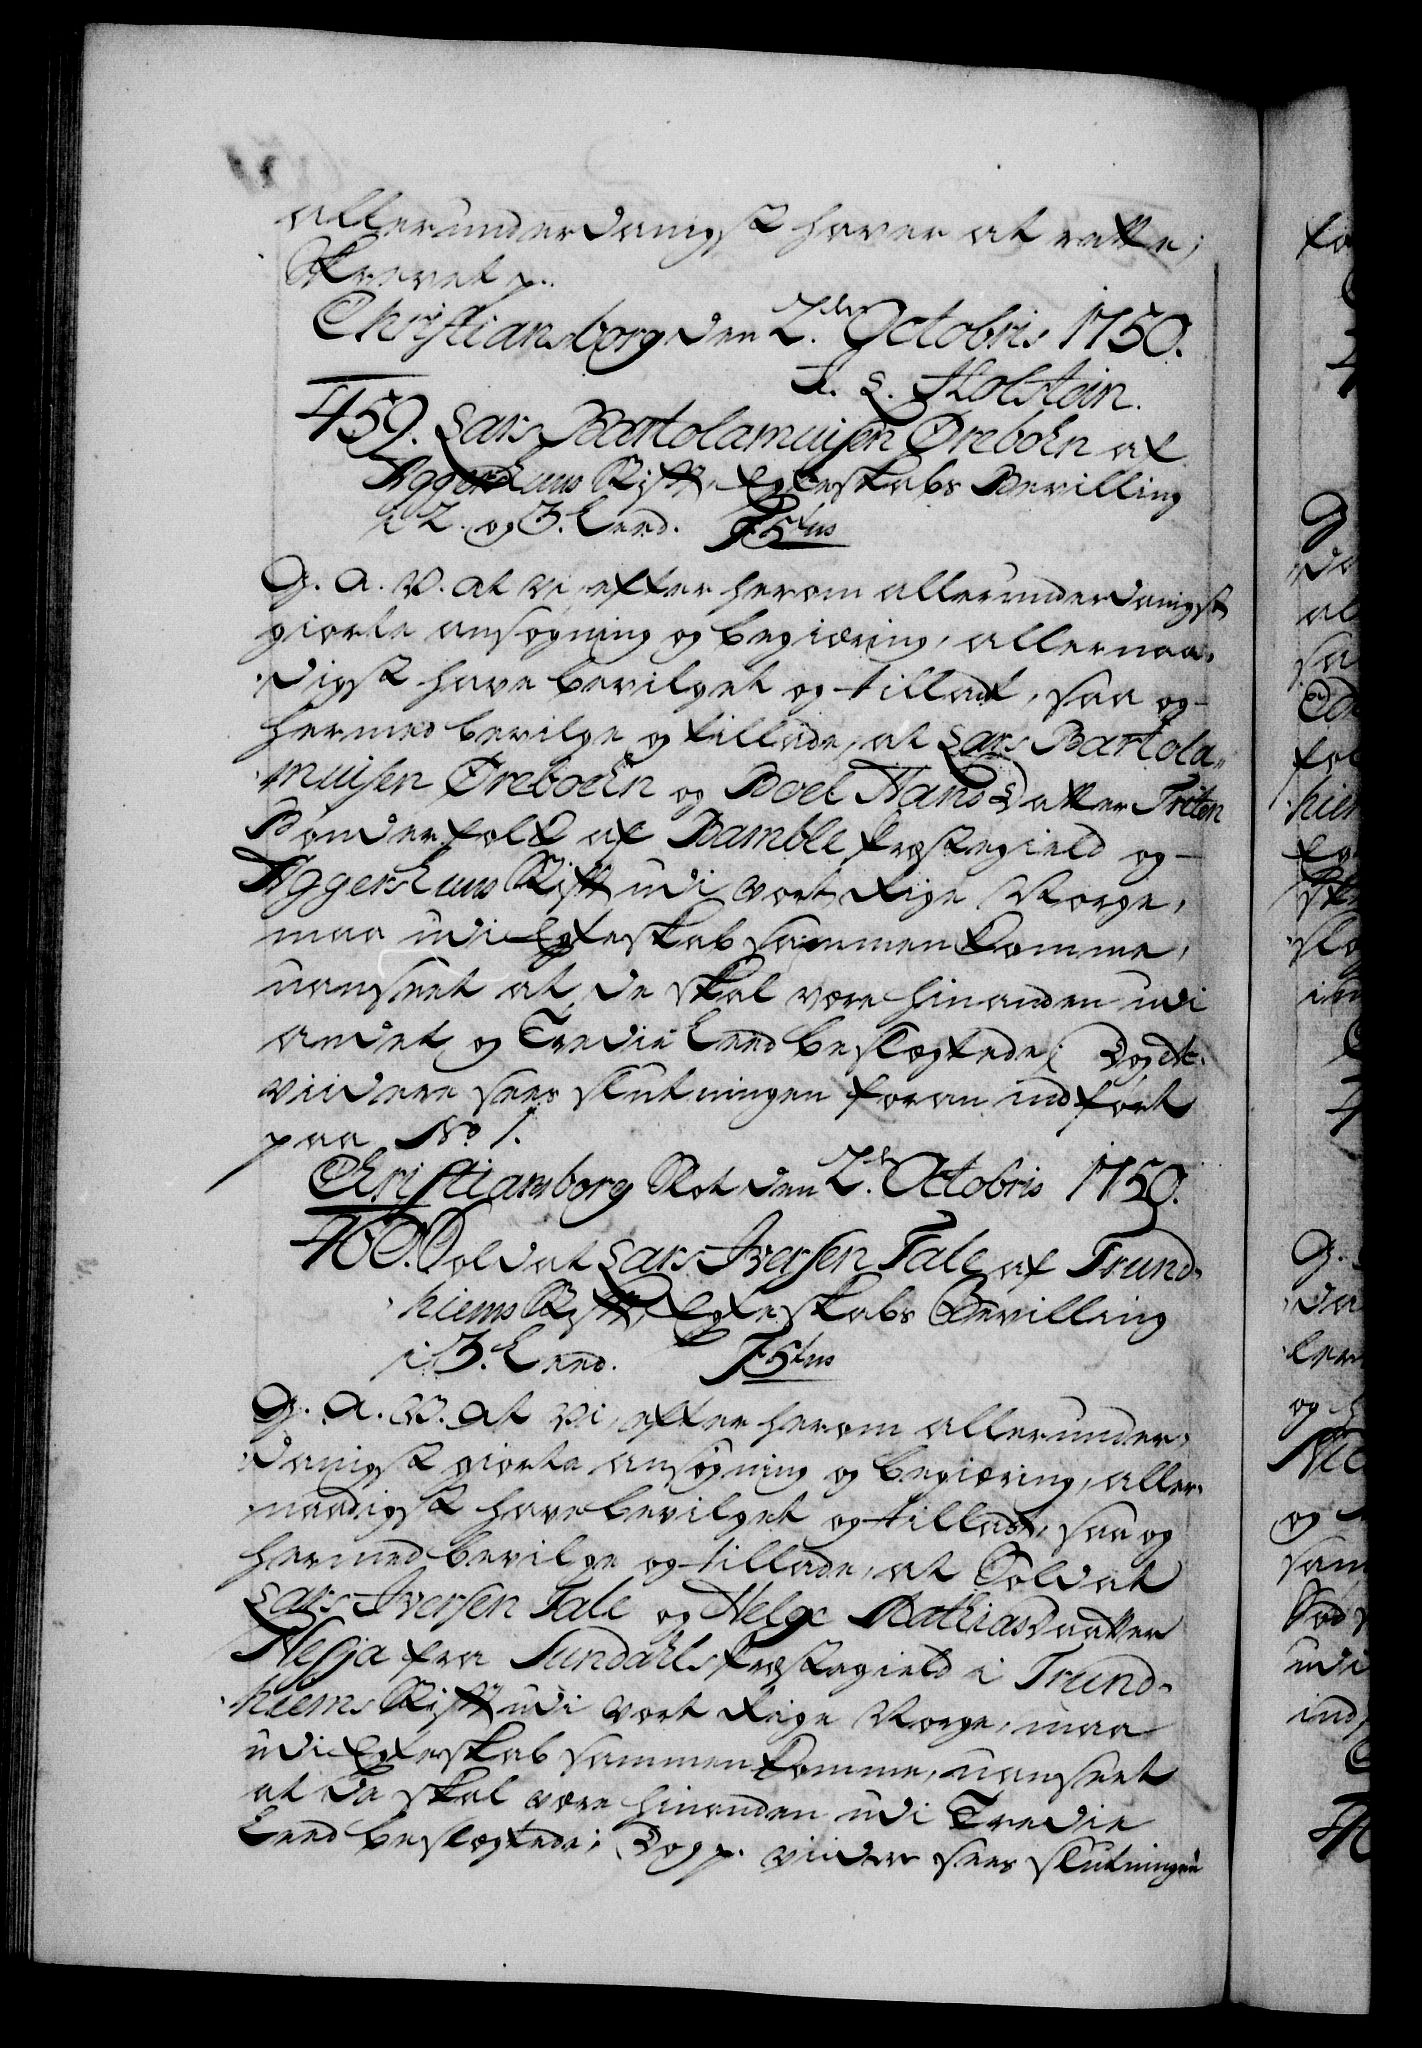 allerunderdanigst haver at rette;
Skrevet p.
Christiansborg den 2den Octobris 1750.
J. L. Holstein.
459. Lars Bartolamuisen Øreboen af
Aggershuus Stift, Egteskabs Bevilling
i 2. og 3. Leed. Fstus
G. A. V. at vi, efter herom allerunderdanigst
giorte ansøgning og begiæring, allernaa-
digst have bevilget og tilladt, saa og
hermed bevilge og tillade, at Lars Bartola-
muisen Øreboen og Boel Hans Datter Triten
Bønderfolk af Bamble Præstegield og
Aggershuus Stift udi vort Rige Norge,
maa udi Egteskab sammenkomme,
uanseet at de skal være hinanden udi
andet og Tredie Leed beslægtede; Dog etc.
viidere sees slutningen foran indført
paa No 1.
Christiansborg Slot den 2den Octobris 1750.
460. Soldat Lars Iversen Tale af Trund-
hiems Stift, Egteskabs Bevilling
i 3. Leed. Fstus
G. A. V. at vi, efter herom allerunder-
danigst giorte ansøgning og begiæring, aller-
naadigst have bevilget og tilladt, saa og
hermed bevilge og tillade, at Soldat
Lars Iversen Tale og Helge Mathiasdaatter
Nesja fra Sundahls Præstegield i Trund-
hiems Stift udi vort Rige Norge, maa
udi Egteskab sammenkomme, uanseet
at de skal være hinanden udi Tredie
Leed beslægtede; Dog p. viidere sees slutningen